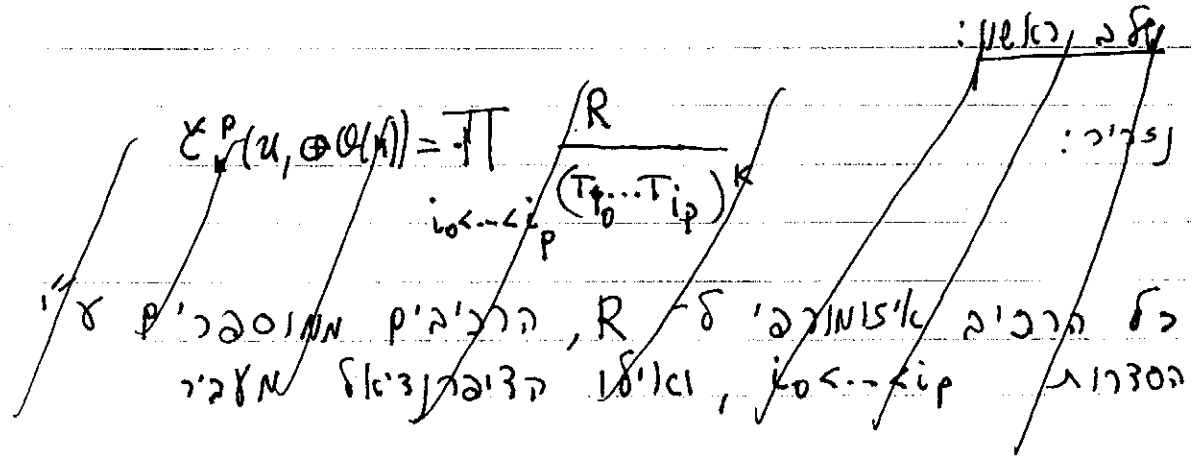 שלב ראשון:
נגדיר:
Č^p(𝔘, ⊕O(n)) = ∏_{i_0<...<i_p} R / (T_{i_0}...T_{i_p})^K
כל הרכיב איזומורפי ל-R, הרכיבים ממוספרים ע"י
הסדרות i_0<...<i_p, ואילו הדיפרנציאל מעביר